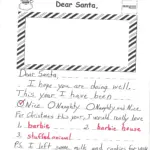 Dear Santa,
Dear Santa,
I hope you are doing well.
This year I have been
Nice Naughty Naughty and Nice
For Christmas this year I would really love
1. barbie 2. barbie house
3. stuffed animal
P.S. I left some milk and cookies for you